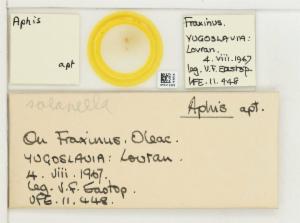 Aphis
apt
Fraxinus.
YUGOSLAVIA:
Lovran.
4. viii. 1967
leg. V.F. Eastop.
VFE. 11. 448
solanella
Aphis apt.
On Fraxinus. Oleac.
YUGOSLAVIA: Lovran.
4. viii. 1967.
leg. V.F. Eastop.
VFE. 11. 448.